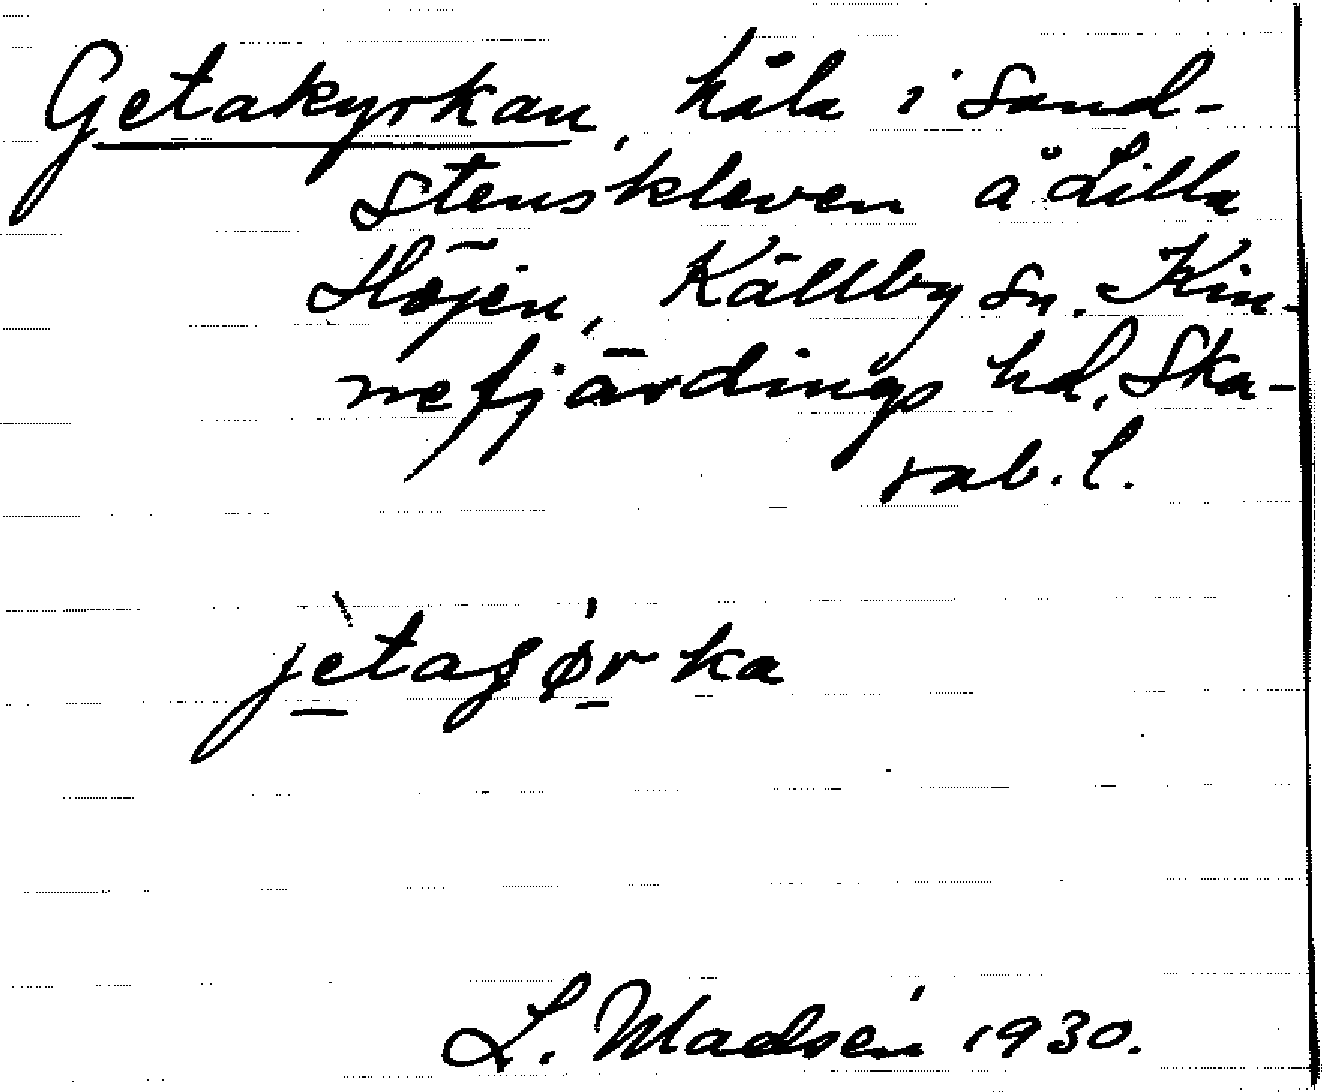 Getakyrkan, håla i Sand-
stenskleven å Lilla
Höjen, Källby sn. Kin-
nefjärdings hd, Ska-
rab. l.
jètaʃø̀rka
L. Madsén 1930.